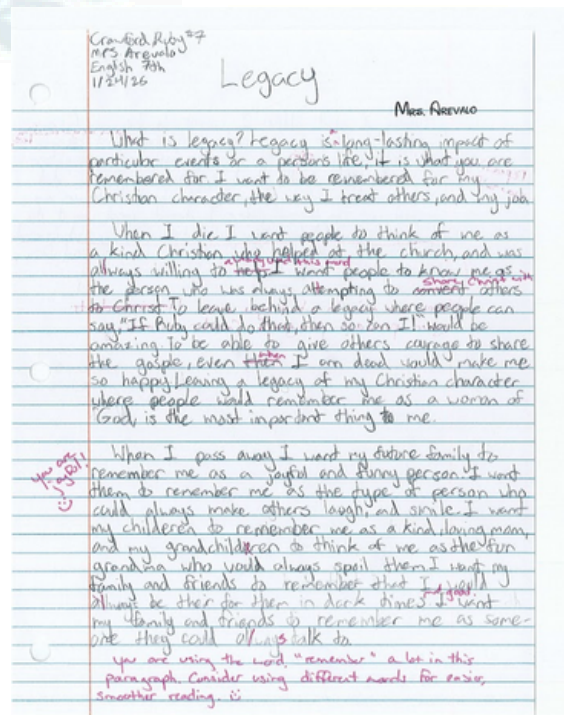 Crawford, Ruby #7
Mrs. Arevalo
English 7th
1/24/26
Legacy
MRS. AREVALO
What is legacy? Legacy is a long-lasting impact of
particular events or a person's life, it is what you are
remembered for. I want to be remembered for my
Christian character, the way I treat others, and my job
When I die I want people to think of me as
a kind Christian who helped at the church, and was
allways willing to help I want people to know me as
the person who was always attempting to convert others
share Christ with
to Christ To leave behind a legacy where people can
say, "If Ruby could do that, then so can I!" would be
amazing. To be able to give others courage to share
the gosple, even then I am dead would make me
when
so happy! Leaving a legacy of my Christian character
where people would remember me as a woman of
God, is the most important thing to me.
When I pass away I want my future family to
you are
joyful!
remember me as a joyful and funny person. I want
them to remember me as the type of person who
could always make others laugh, and smile. I want
my childeren to remember me as a kind, loving mom,
and my grandchilderen to think of me as the fun
grandma who would always spoil them I want my
family and friends to remember that I would
allways be their for them in dark times I want
and good.
my family and friends to remember me as some-
one they could always talk to
you are using the word "remember" a lot in this
paragraph. Consider using different words for easier,
smoother reading.